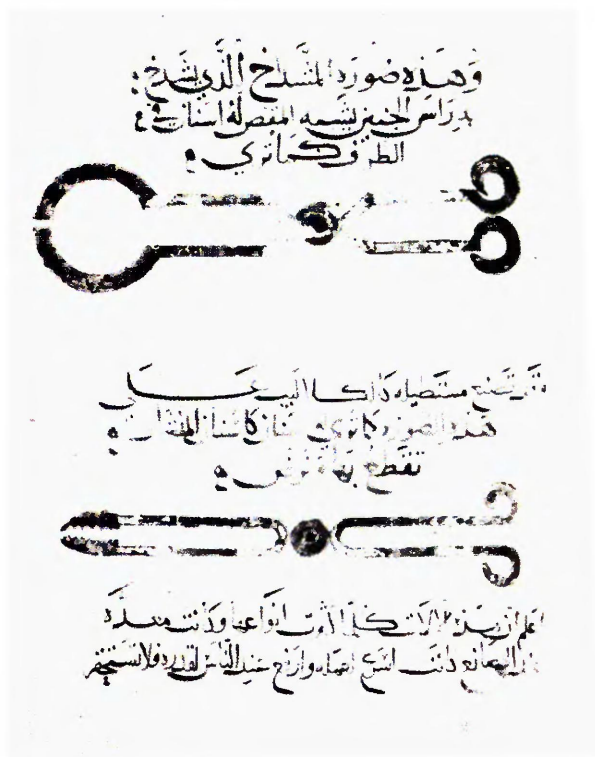 وهذه صورة المشداخ الذي يشدخ
به راس الجنين يشبه المقص له اسنان في
الطرف كما ترى
تصنع مستطيلة كالكلاليب على
هذه الصورة كما ترى اسنان كاسنان المنشار
تقطع بها وترض
اعلم ان هذه الالات كلما كثرت انواعها وكانت معدة
عند الصانع كانت اسرع لعمله وارفع عند الناس لقدره فلا تستحقر